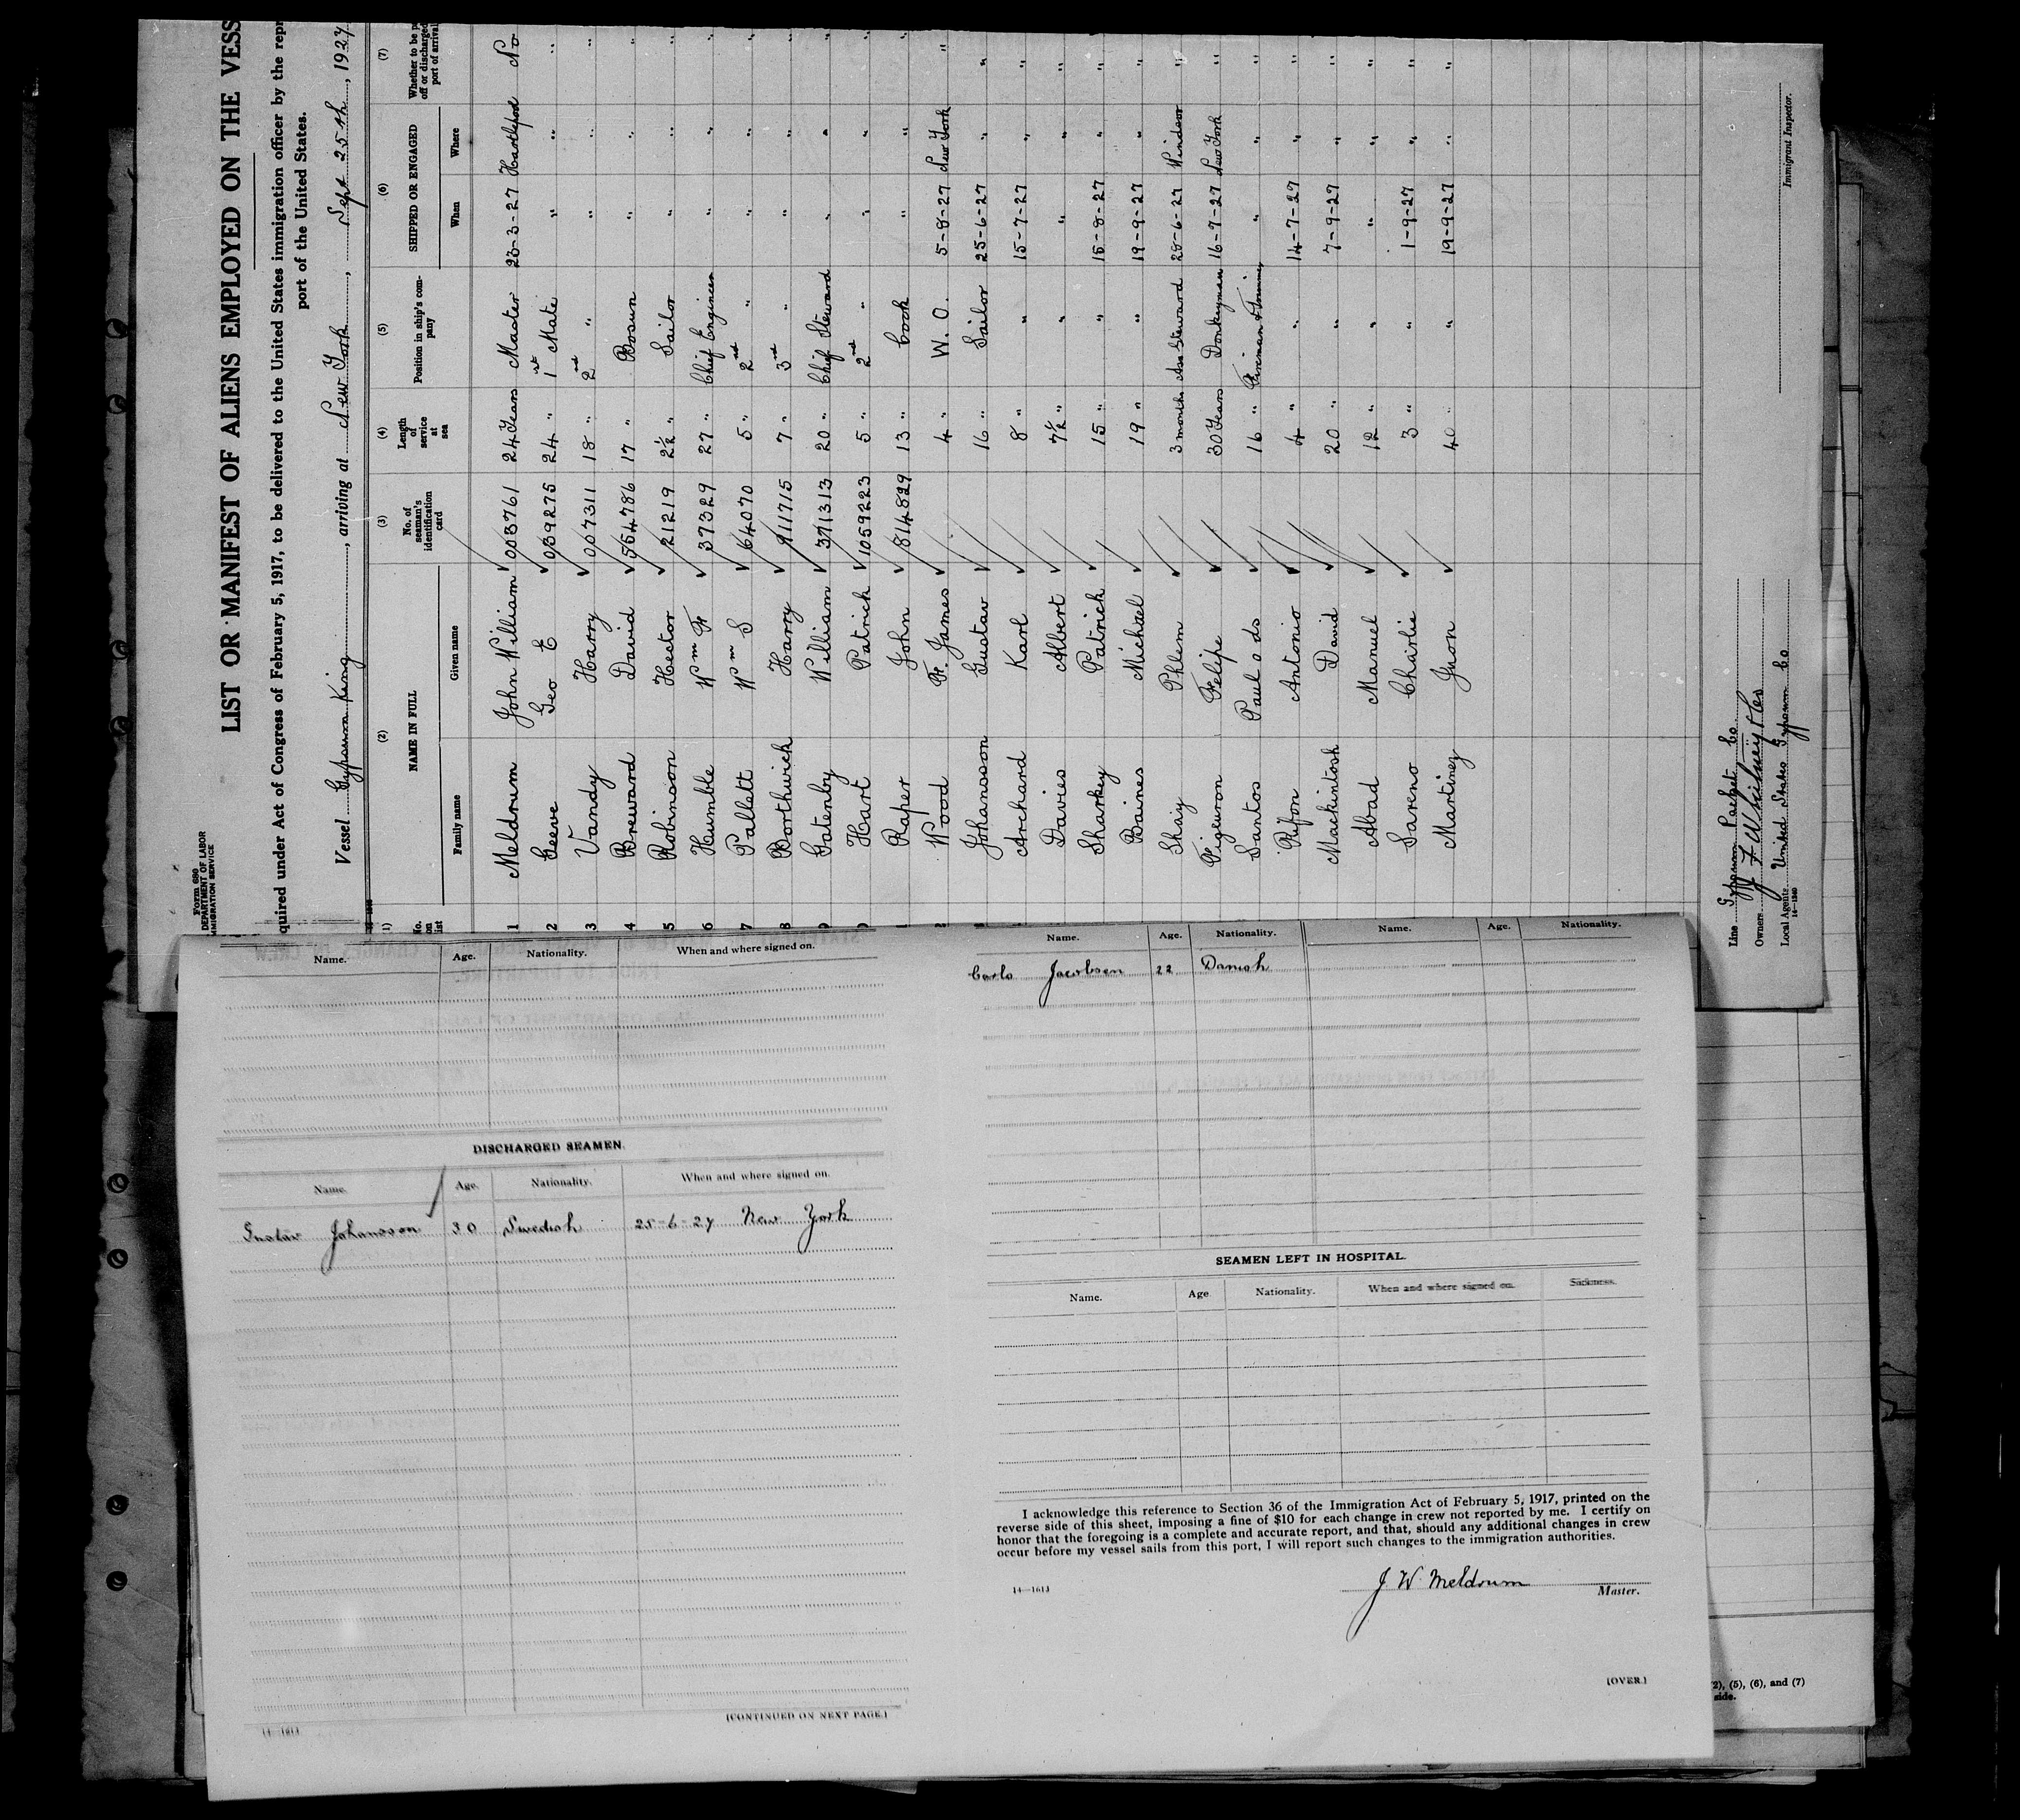 Form 680
DEPARTMENT OF LABOR
IMMIGRATION SERVICE
LIST OR MANIFEST OF ALIENS EMPLOYED ON THE VESS
quired under Act of Congress of February 5, 1917, to be delivered to the United States immigration officer by the repr
port of the United States.
Vessel Gypsum King, arriving at New York, Sept 25th, 1927
(1) (2) (3) (4) (5) (6) (7)
No. on list NAME IN FULL No. of seaman's identification card Length of service at sea Position in ship's com- pany SHIPPED OR ENGAGED Whether to be p off or discharged port of arrival
Family name Given name When Where
1 Meldrum John William 003761 24 Years Master 23-3-27 Hartlepool No
2 Geeve Geo E 039275 24 " 1st Mate " " "
3 Vandy Harry 007311 18 " 2nd " " " "
4 Breward David 554786 17 " Bosun " " "
5 Robinson Hector 21219 2½ " Sailor " " "
6 Humble Wm Fr 37329 27 " Chief Engineer " " "
7 Pallett Wm S 64070 5 " 2nd " " " "
8 Borthwick Harry 911715 7 " 3rd " " " "
9 Gatenby William 371313 20 " Chief Steward " " "
0 Hart Patrick 1059223 5 " 2nd " " " "
1 Raper John 814829 13 " Cook " " "
2 Wood Fr. James 4 " W. O. 5-8-27 New York "
Johansson Gustav 16 " Sailor 25-6-27 " "
Archard Karl 8 " " 15-7-27 " "
Davies Albert 7½ " " " " "
Sharkey Patrick 15 " " 15-8-27 " "
Baines Michael 19 " " 19-9-27 " "
Shay Phlem 3 months Ass Steward 28-6-27 Windsor "
Figeuron Felipe 30 Years Donkeyman 16-7-27 New York "
Santos Paul o ds 16 " Fireman & Trimmer " " "
Rifon Antonio 4 " " 14-7-27 " "
Mackintosh David 20 " " 7-9-27 " "
Abad Manuel 12 " " " " "
Sareno Charlie 3 " " 1-9-27 " "
Martinez Juon 40 " " 19-9-27 " "
Line Gypsum Packet Co.
Owners
Local Agents United States Gypsum Co
14-1240
Immigrant Inspector.
Name. Age. Nationality. When and where signed on.
DISCHARGED SEAMEN.
Name. Age. Nationality. When and where signed on.
Gustav Johansson 30 Swedish 25-6-27 New York
14—1613
[CONTINUED ON NEXT PAGE.]
Name. Age. Nationality. Name. Age. Nationality.
Carlo Jacobsen 22 Danish
SEAMEN LEFT IN HOSPITAL.
Name. Age. Nationality. When and where signed on. Sickness.
I acknowledge this reference to Section 36 of the Immigration Act of February 5, 1917, printed on the
reverse side of this sheet, imposing a fine of $10 for each change in crew not reported by me. I certify on
honor that the foregoing is a complete and accurate report, and that, should any additional changes in crew
occur before my vessel sails from this port, I will report such changes to the immigration authorities.
14—1613
J. W. Meldrum
Master.
[OVER.]
2), (5), (6), and (7)
side.